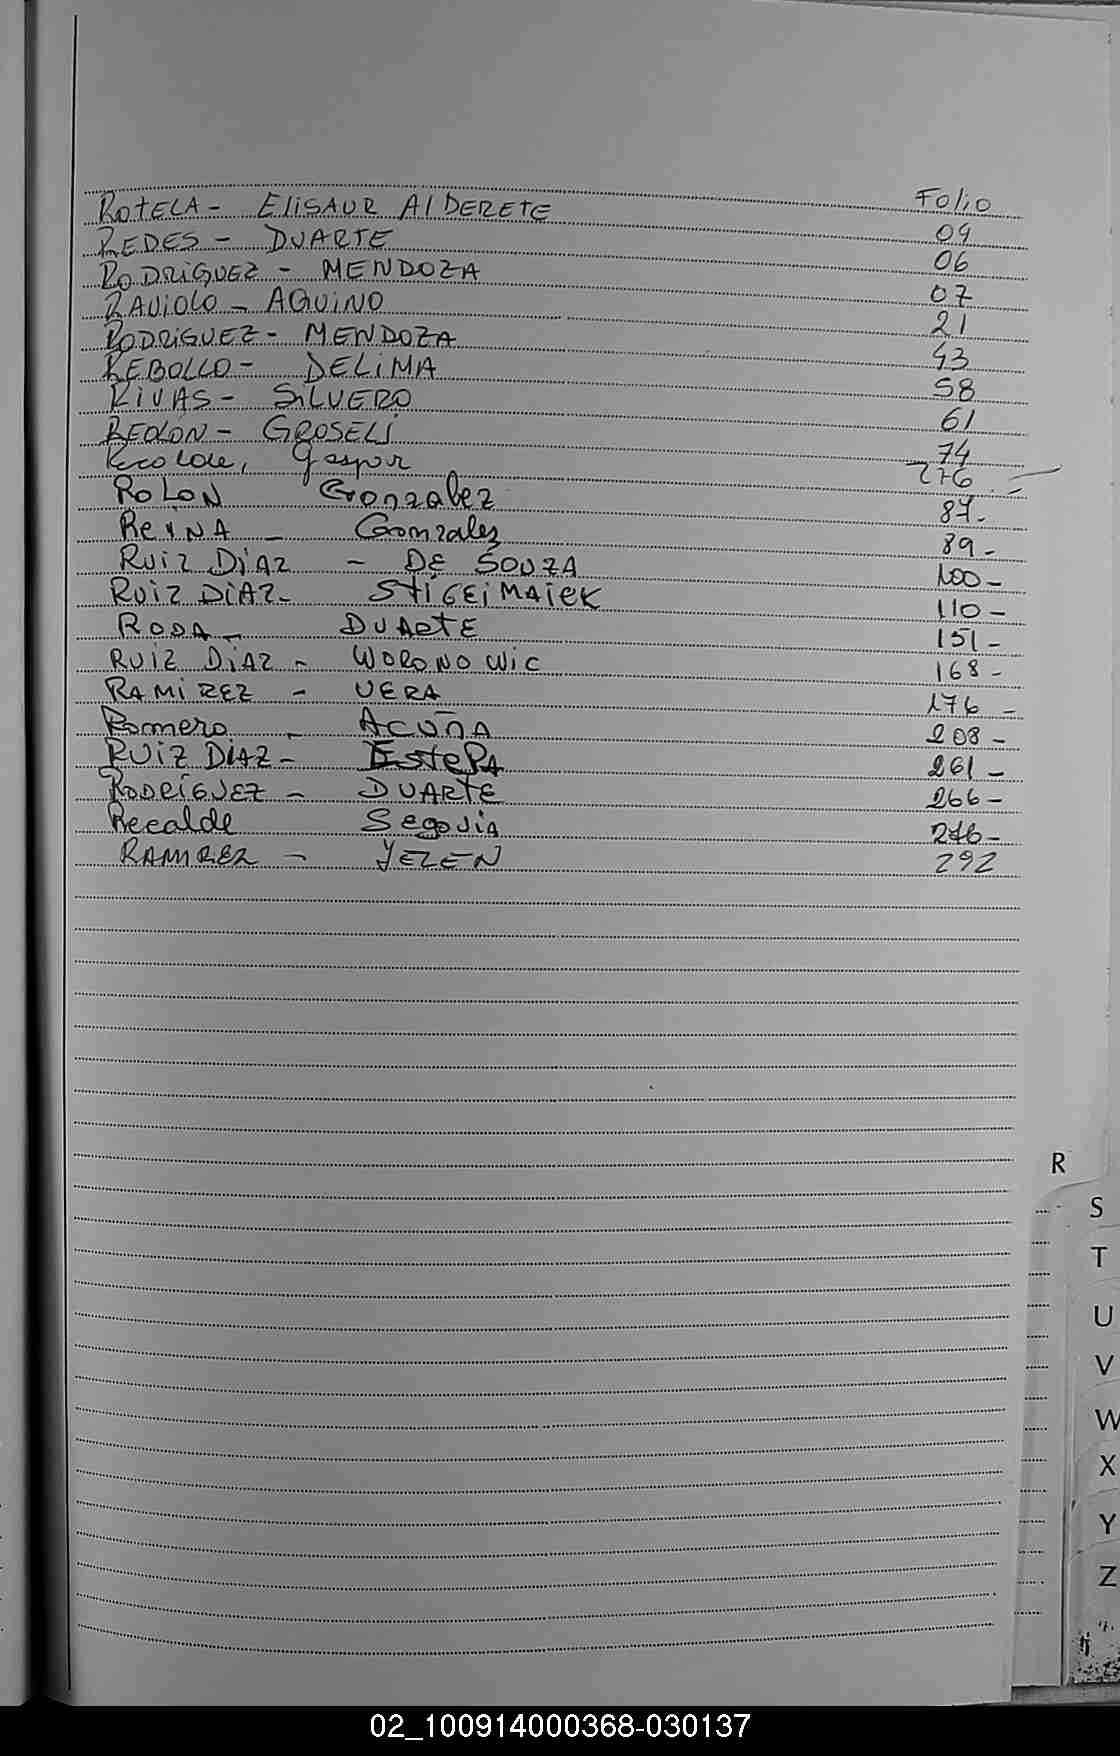 Folio
ROTELA - ELISAUR ALDERETE 09
REDES - DUARTE 06
RODRIGUEZ - MENDOZA 07
RAVIOLO - AQUINO 21
RODRIGUEZ - MENDOZA 43
REBOLLO - DELIMA 58
RIVAS - SILVERO 61
REOLON - GROSELI 74
Gaspar 276
ROLON Gonzalez 87-
REINA - Gonzalez 89-
RUIZ DIAZ - DE SOUZA 100-
RUIZ DIAZ - STIGEIMAIEK 110-
RODA - DUARTE 151-
RUIZ DIAZ - WORONOWIC 168-
RAMIREZ - VERA 176-
Romero - ACUÑA 208-
RUIZ DIAZ - EstePA 261-
RODRÍGUEZ - DUARTE 266-
Recalde Segovia 276-
RAMIREZ - YEZEN 292
R
S
T
U
V
W
X
Y
Z
02_100914000368-030137